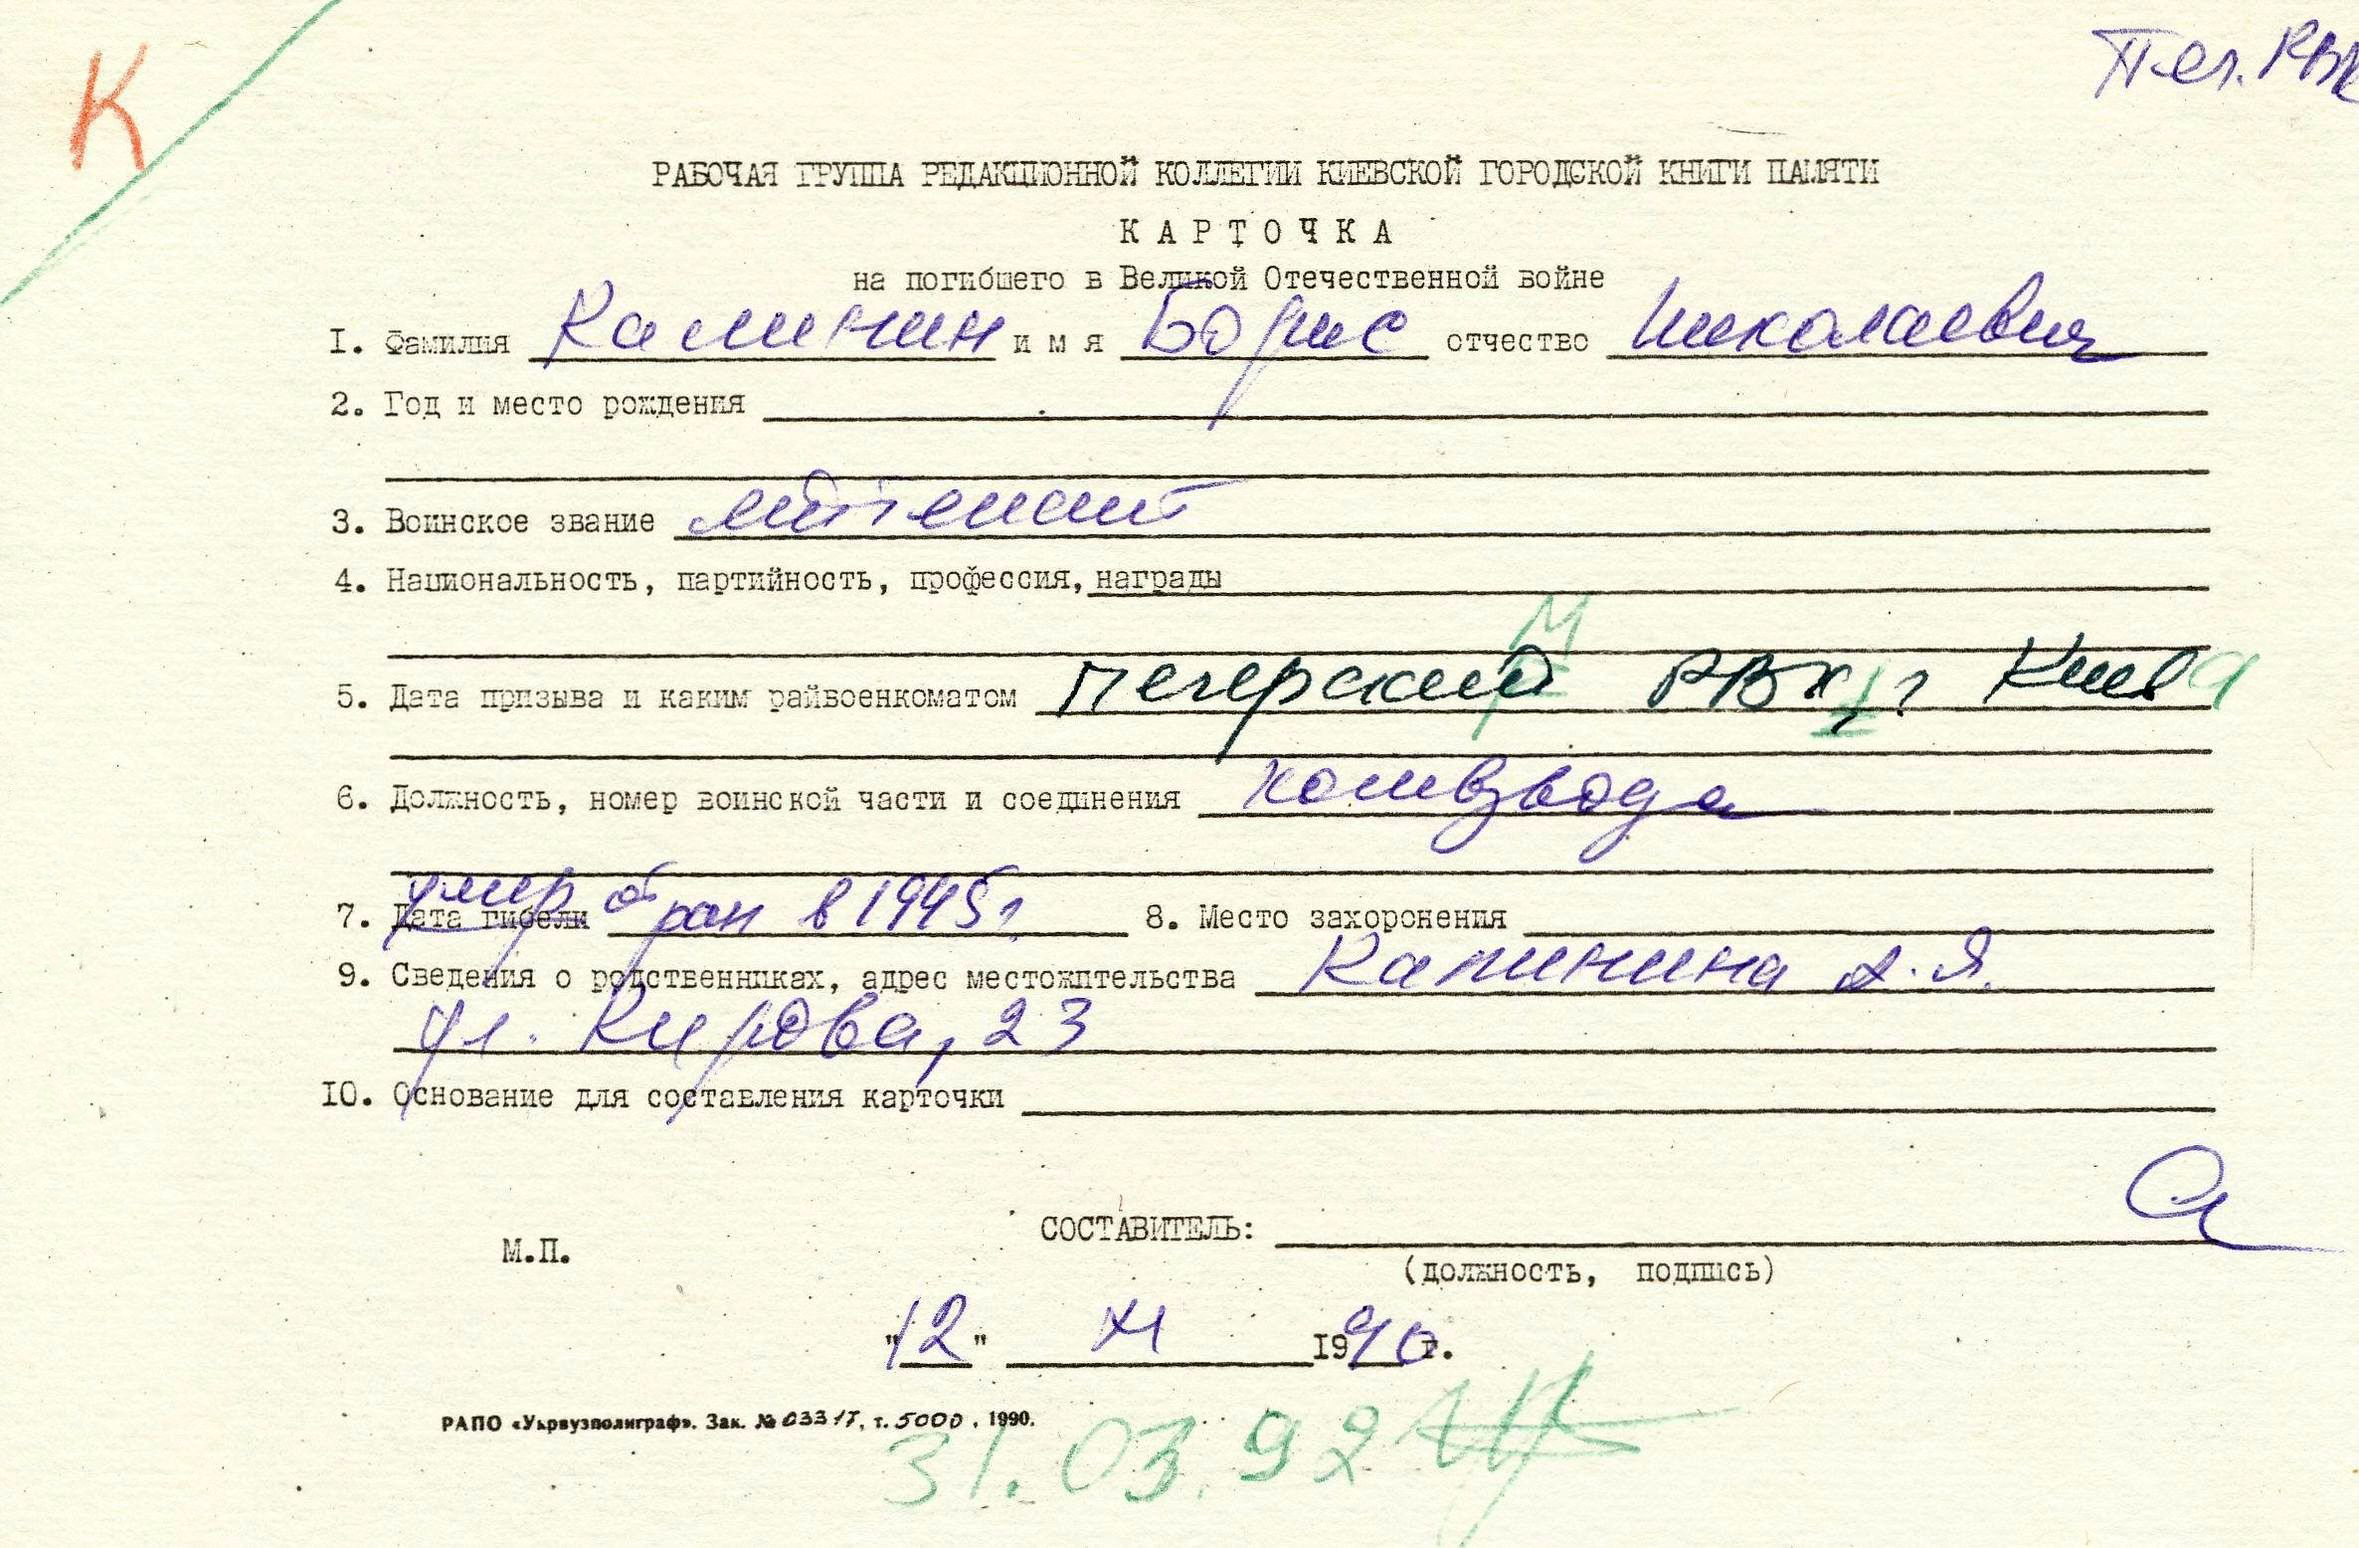 К
Печ. РВК
РАБОЧАЯ ГРУППА РЕДАКЦИОННОЙ КОЛЛЕГИИ КИЕВСКОЙ ГОРОДСКОЙ КНИГИ ПАМЯТИ
КАРТОЧКА
на погибшего в Великой Отечественной войне
1. Фамилия Калинин имя Борис отчество Николаевич
2. Год и место рождения
3. Воинское звание лейтенант
4. Национальность, партийность, профессия, награды
5. Дата призыва и каким райвоенкоматом Печерский РВК, г Киева
6. Должность, номер воинской части и соединения комвзвода
7. Дата гибели умер от ран в 1945г. 8. Место захоронения
9. Сведения о родственниках, адрес местожительства Калинина А.Я.
ул. Кирова, 23
10. Основание для составления карточки
СОСТАВИТЕЛЬ:
М.П.
(должность, подпись)
"12" XI 1990г.
РАПО «Укрвузполиграф». Зак. № 03317, т. 5000, 1990.
31.03.92